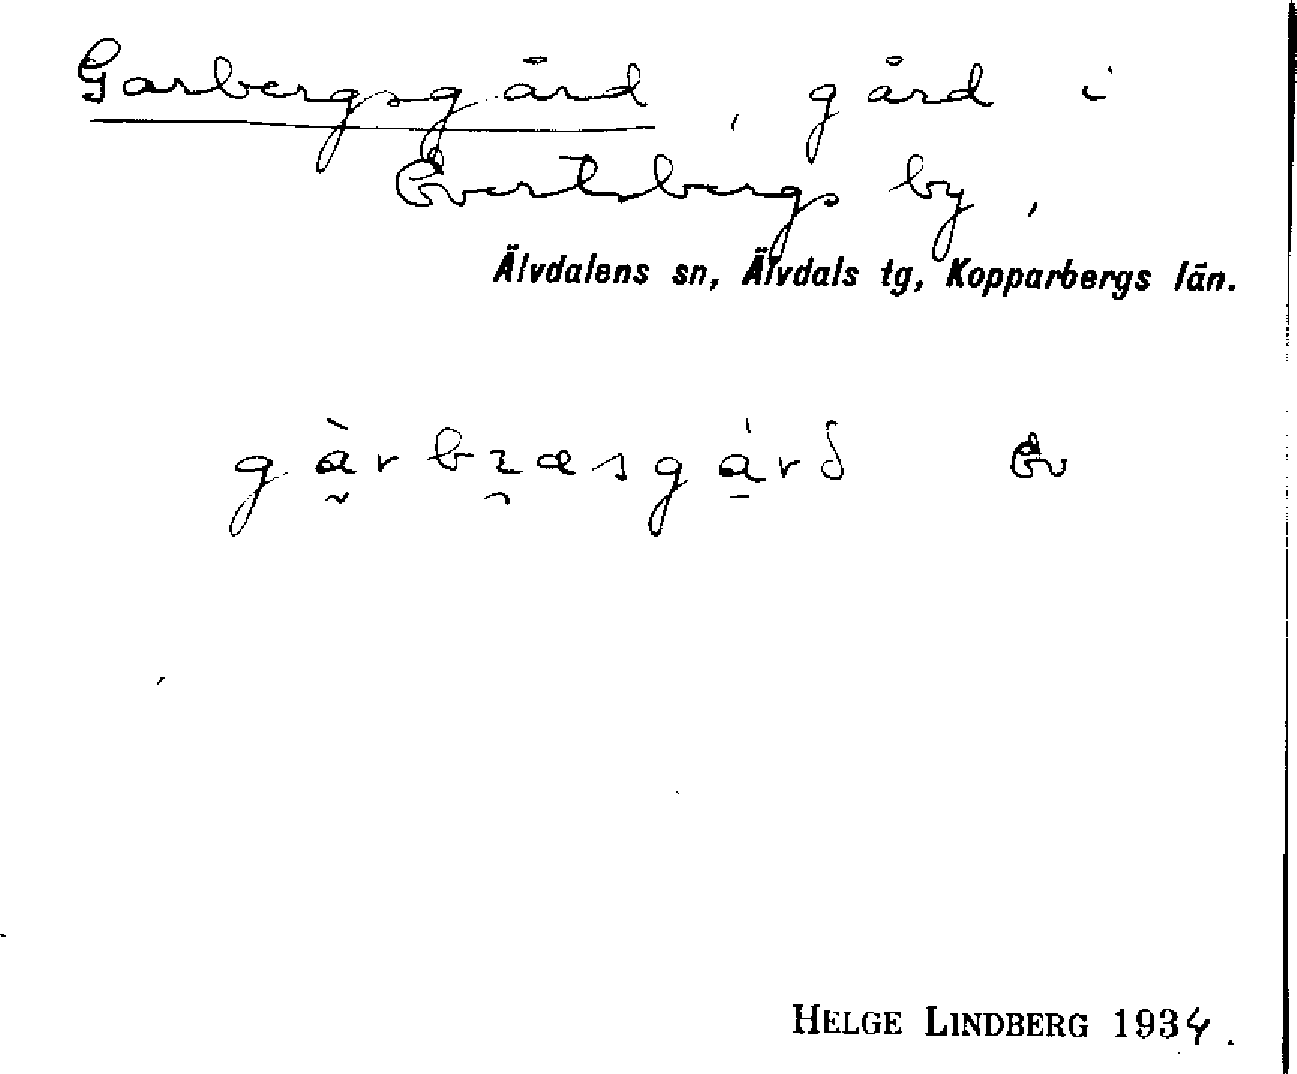 Garbergsgård, gård i
Evertsbergs by,
Älvdalens sn, Älvdals tg, Kopparbergs län.
gàrbræsgárδ Ev
HELGE LINDBERG 1934.